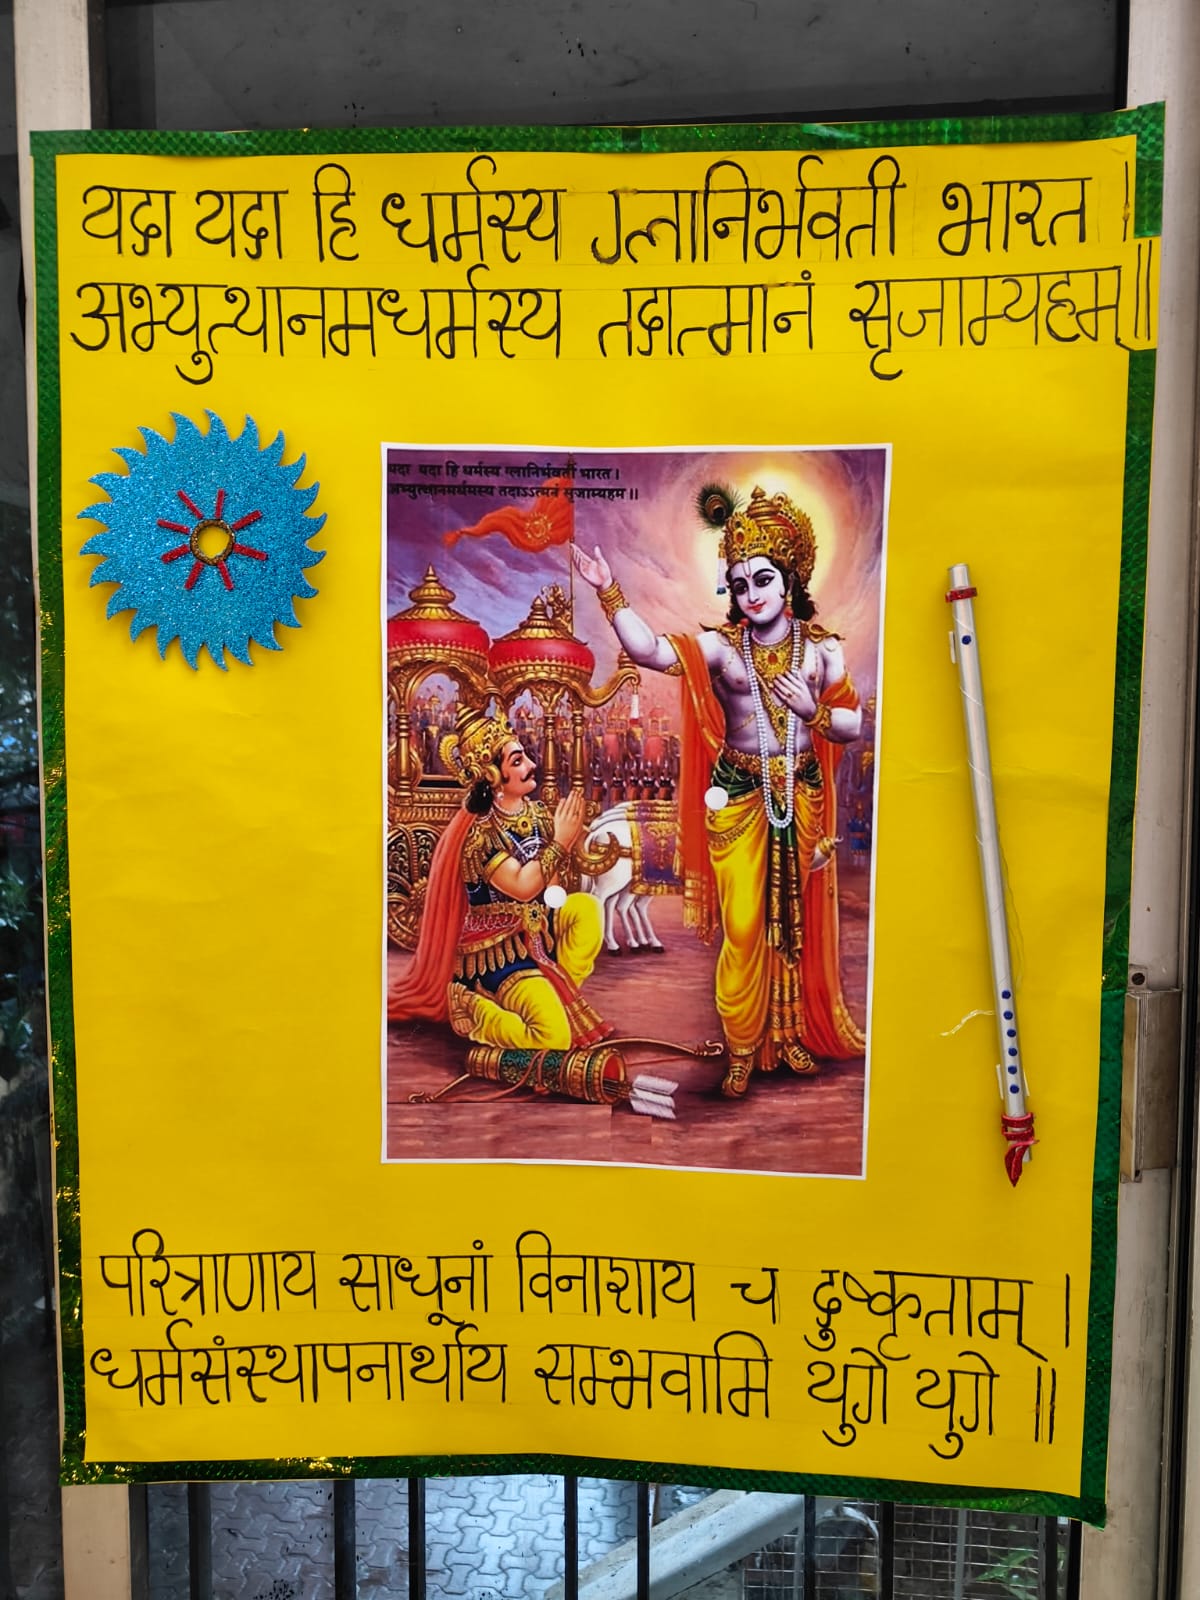 यदा यदा हि धर्मस्य ग्लानिर्भवती भारत ।
अभ्युत्थानमधर्मस्य तदात्मानं सृजाम्यहम् ॥
यदा यदा हि धर्मस्य ग्लानिर्भवती भारत ।
अभ्युत्थानमर्धमस्य तदाऽऽत्मनं सृजाम्यहम ॥
परित्राणाय साधूनां विनाशाय च दुष्कृताम् ।
धर्मसंस्थापनार्थाय सम्भवामि युगे युगे ॥